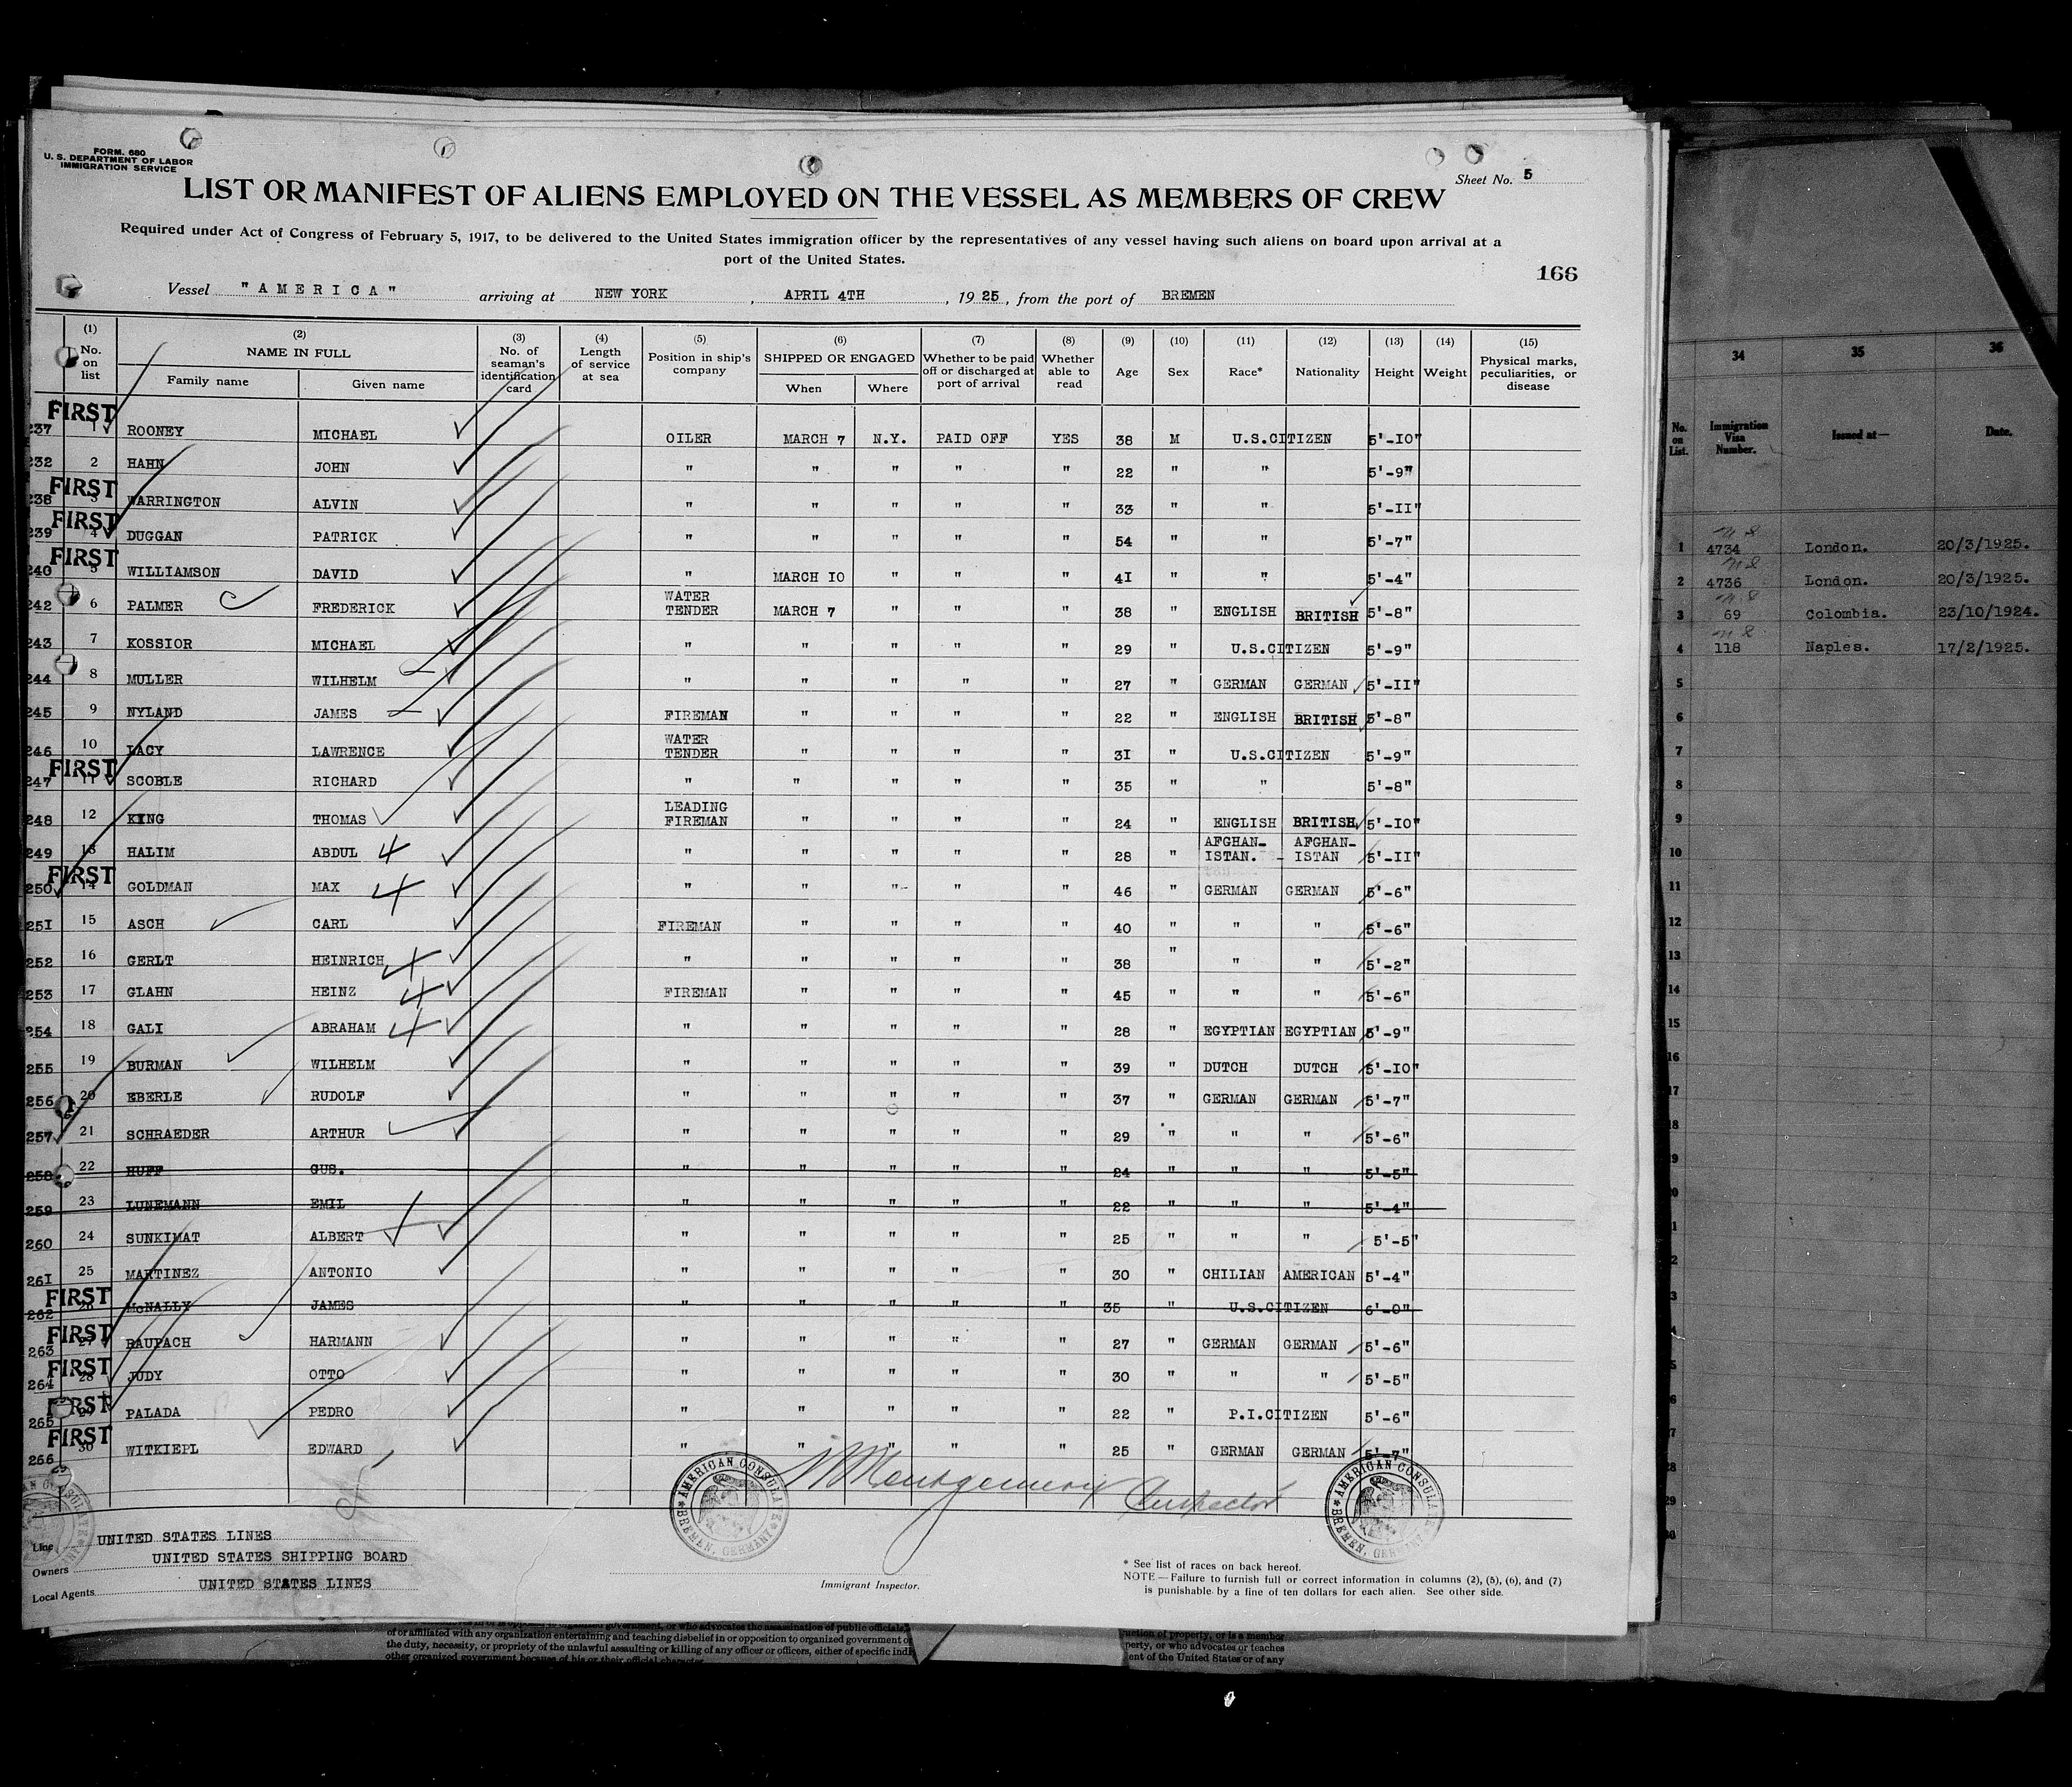 FORM. 680
U. S. DEPARTMENT OF LABOR
IMMIGRATION SERVICE
Sheet No. 5
LIST OR MANIFEST OF ALIENS EMPLOYED ON THE VESSEL AS MEMBERS OF CREW
Required under Act of Congress of February 5, 1917, to be delivered to the United States immigration officer by the representatives of any vessel having such aliens on board upon arrival at a
port of the United States.
166
Vessel "AMERICA" arriving at NEW YORK, APRIL 4TH, 1925, from the port of BREMEN
(1) (2) (3) (4) (5) (6) (7) (8) (9) (10) (11) (12) (13) (14) (15)
No. on list NAME IN FULL Family name Given name No. of seaman's identification card Length of service at sea Position in ship's company SHIPPED OR ENGAGED When Where Whether to be paid off or discharged at port of arrival Whether able to read Age Sex Race* Nationality Height Weight Physical marks, peculiarities, or disease
FIRST
237 1 ROONEY MICHAEL OILER MARCH 7 N.Y. PAID OFF YES 38 M U.S.CITIZEN 5'-10"
232 2 HAHN JOHN " " " " " 22 " " 5'-9"
FIRST
238 3 WARRINGTON ALVIN " " " " " 33 " " 5'-11"
FIRST
239 4 DUGGAN PATRICK " " " " " 54 " " 5'-7"
FIRST
240 5 WILLIAMSON DAVID " MARCH 10 " " " 41 " " 5'-4"
242 6 PALMER FREDERICK WATER TENDER MARCH 7 " " " 38 " ENGLISH BRITISH 5'-8"
243 7 KOSSIOR MICHAEL " " " " " 29 " U.S.CITIZEN 5'-9"
244 8 MULLER WILHELM " " " " " 27 " GERMAN GERMAN 5'-11"
245 9 NYLAND JAMES FIREMAN " " " " 22 " ENGLISH BRITISH 5'-8"
246 10 LACY LAWRENCE WATER TENDER " " " " 31 " U.S.CITIZEN 5'-9"
FIRST
247 11 SCOBLE RICHARD " " " " " 35 " " 5'-8"
248 12 KING THOMAS LEADING FIREMAN " " " " 24 " ENGLISH BRITISH 5'-10"
249 13 HALIM ABDUL 4 " " " " " 28 " AFGHAN-ISTAN. AFGHAN-ISTAN 5'-11"
FIRST
250 14 GOLDMAN MAX 4 " " " " " 46 " GERMAN GERMAN 5'-6"
251 15 ASCH CARL FIREMAN " " " " 40 " " " 5'-6"
252 16 GERLT HEINRICH 4 " " " " " 38 " " " 5'-2"
253 17 GLAHN HEINZ 4 FIREMAN " " " " 45 " " " 5'-6"
254 18 GALI ABRAHAM 4 " " " " " 28 " EGYPTIAN EGYPTIAN 5'-9"
255 19 BURMAN WILHELM " " " " " 39 " DUTCH DUTCH 5'-10"
256 20 EBERLE RUDOLF " " " " " 37 " GERMAN GERMAN 5'-7"
257 21 SCHRAEDER ARTHUR " " " " " 29 " " " 5'-6"
258 22 HUFF GUS. " " " " " 24 " " " 5'-5"
259 23 LUNEMANN EMIL " " " " " 22 " " " 5'-4"
260 24 SUNKIMAT ALBERT " " " " " 25 " " " 5'-5"
261 25 MARTINEZ ANTONIO " " " " " 30 " CHILIAN AMERICAN 5'-4"
FIRST
262 26 McNALLY JAMES " " " " " 35 " U.S.CITIZEN 6'-0"
FIRST
263 27 RAUPACH HARMANN " " " " " 27 " GERMAN GERMAN 5'-6"
FIRST
264 28 JUDY OTTO " " " " " 30 " " " 5'-5"
FIRST
265 29 PALADA PEDRO " " " " " 22 " P.I.CITIZEN 5'-6"
FIRST
266 30 WITKIEPL EDWARD " " " " " 25 " GERMAN GERMAN 5'-7"
Montgomery Inspector
AMERICAN CONSULATE BREMEN, GERMANY
AMERICAN CONSULATE BREMEN, GERMANY
Line UNITED STATES LINES
Owners UNITED STATES SHIPPING BOARD
Local Agents UNITED STATES LINES
Immigrant Inspector.
* See list of races on back hereof.
NOTE—Failure to furnish full or correct information in columns (2), (5), (6), and (7)
is punishable by a fine of ten dollars for each alien. See other side.
of or affiliated with any organization entertaining and teaching disbelief in or opposition to organized government or
the duty, necessity, or propriety of the unlawful assaulting or killing of any officer or officers, either of specific indi
other organized government because of his or their official character
uction of property, or is a member
perty, or who advocates or teaches
ent of the United States or of any
34 35 36
No. on List. Immigration Visa Number. Issued at— Date.
1 4734 London. 20/3/1925.
2 4736 London. 20/3/1925.
3 69 Colombia. 23/10/1924.
4 118 Naples. 17/2/1925.
5
6
7
8
9
10
11
12
13
14
15
16
17
18
19
20